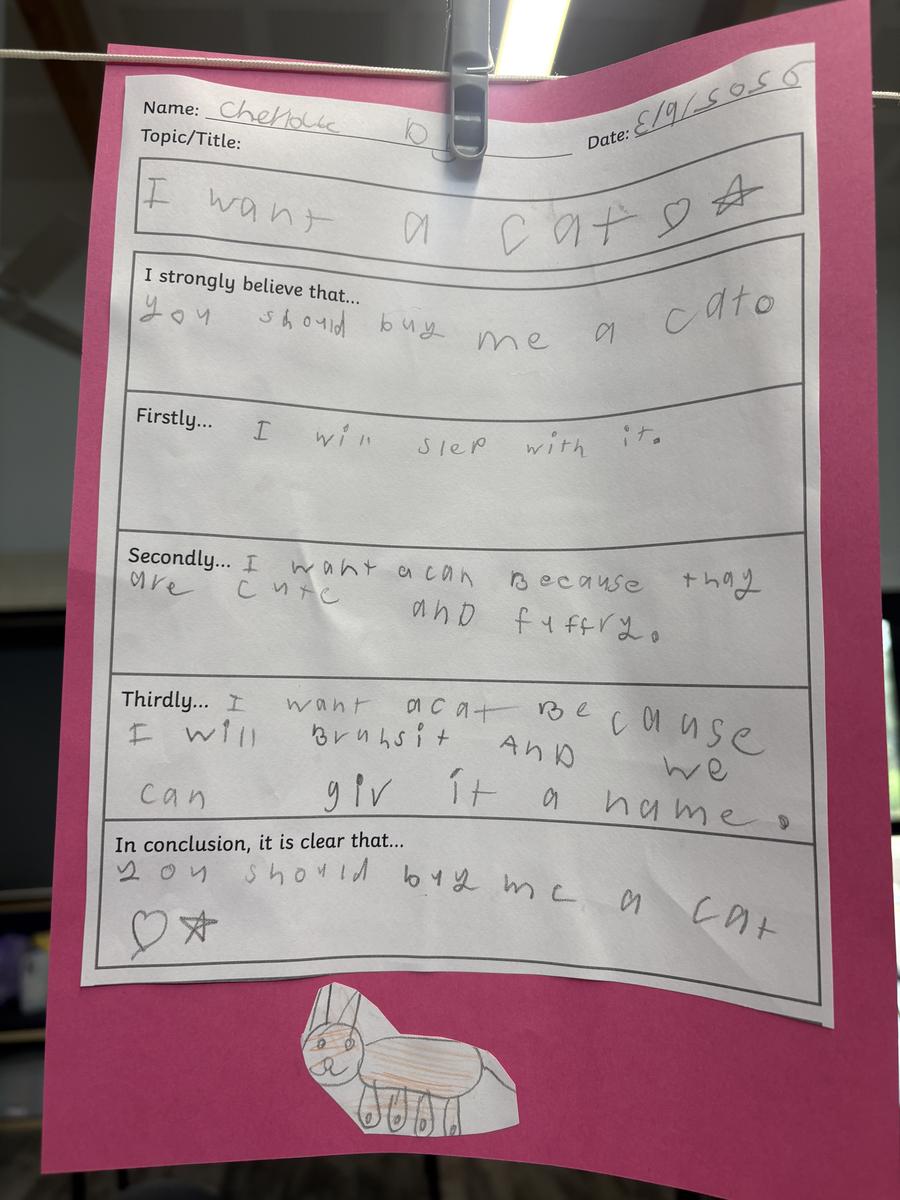 Name: D
Date: 3/9/2025
Topic/Title:
I want a cat
I strongly believe that...
you should buy me a cat.
Firstly... I will slep with it.
Secondly... I want a can Because thay
are cute anD fuffry.
Thirdly... I want a cat Because
I will Bruhsit AnD we
can giv it a name.
In conclusion, it is clear that...
you should buy me a cat